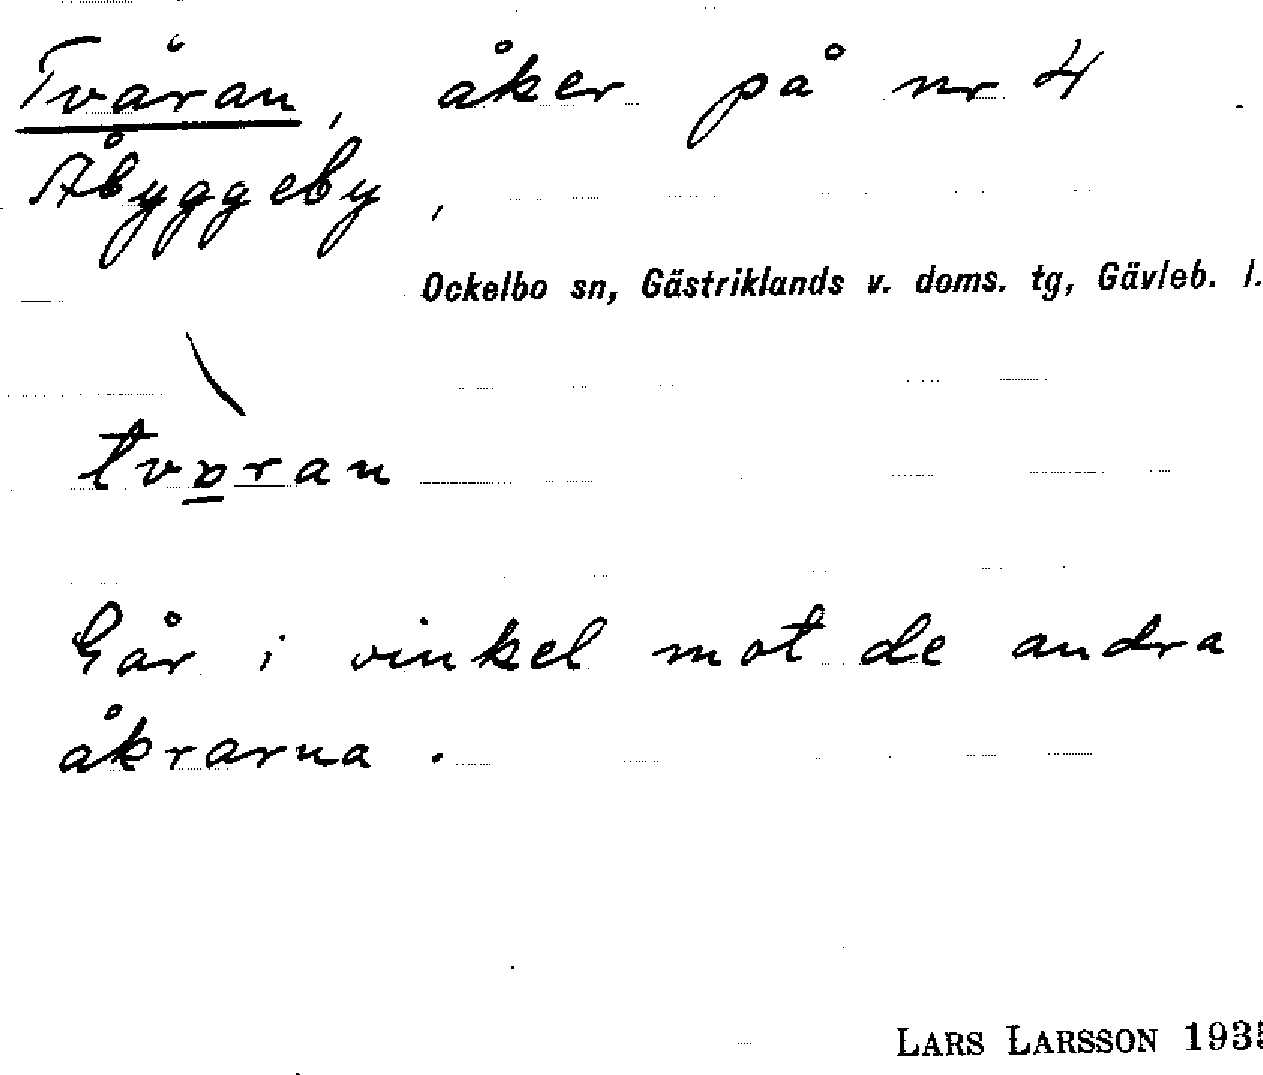 Tvåran, åker på nr 4
Åbyggeby,
Ockelbo sn, Gästriklands v. doms. tg, Gävleb. l.
tvɒran
Går i vinkel mot de andra
åkrarna.
LARS LARSSON 1935